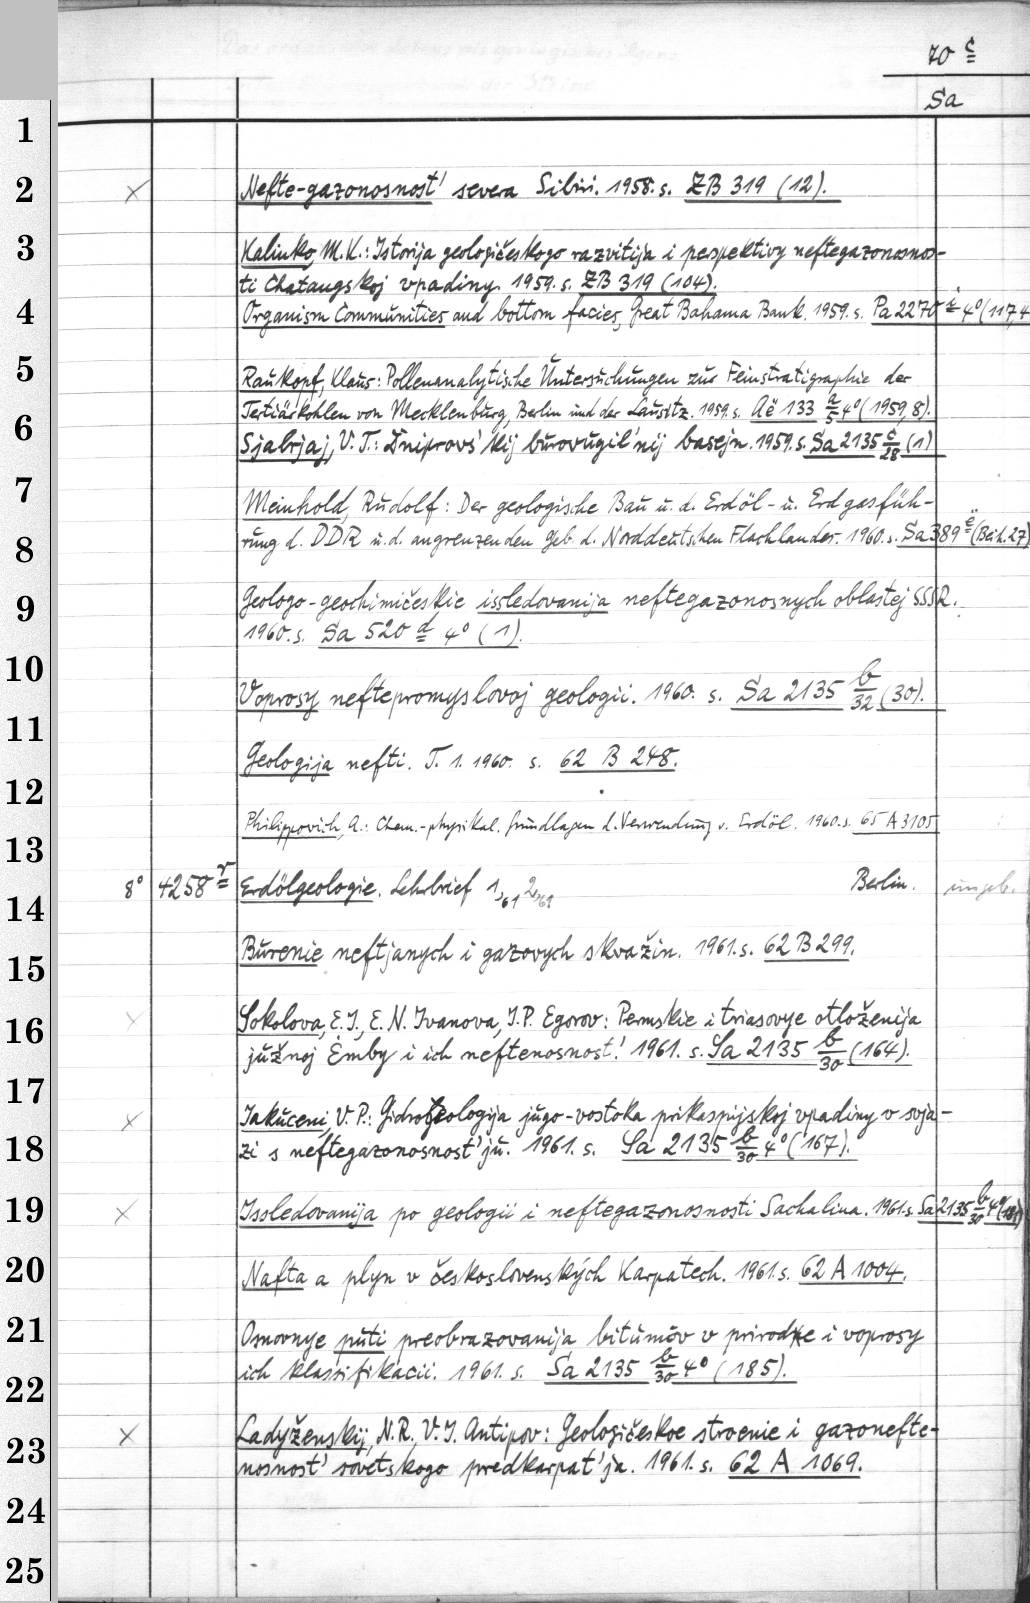 70 c
Sa
1
2 × Nefte-gazonosnost' severa Sibiri. 1958. s. ZB 319 (12).
3 Kalinko, M.K.: Istorija geologičeskogo razvitija i perspektivy neftegazonosnos-
ti Chatangskoj vpadiny. 1959. s. ZB 319 (104).
4 Organism Communities and bottom facies, Great Bahama Bank. 1959. s. Pa 2270 4° (117,4
5 Raukopf, Klaus: Pollenanalytische Untersuchungen zur Feinstratigraphie der
Tertiärkohlen von Mecklenburg, Berlin und der Lausitz. 1959. s. Aë 133 a/5 4° (1959, 8).
6 Sjabrjaj, V.T.: Dniprovs'kij burovugil'nij basejn. 1959. s. Sa 2135 c/28 (1)
7 Meinhold, Rudolf: Der geologische Bau u. d. Erdöl- u. Erdgasfüh-
8 rung d. DDR u. d. angrenzenden Geb. d. Norddeutschen Flachlandes. 1960. s. Sa 389 (Beih. 27)
9 Geologo-geochimičeskie issledovanija neftegazonosnych oblastej SSSR.
1960. s. Sa 520 d 4° (1).
10
Voprosy neftepromyslovoj geologii. 1960. s. Sa 2135 b/32 (30).
11
Geologija nefti. T. 1. 1960. s. 62 B 248.
12
Philippovich, A.: Chem.-physikal. Grundlagen d. Verwendung v. Erdöl. 1960. s. 65 A 3105
13
8° 4258 r Erdölgeologie. Lehrbrief 1,61 2,61 Berlin. ungeb.
14
Burenie neftjanych i gazovych skvažin. 1961. s. 62 B 299.
15
16 × Sokolova, E.I., E.N. Ivanova, I.P. Egorov: Permskie i triasovye otloženija
južnoj Ėmby i ich neftenosnost'. 1961. s. Sa 2135 b/30 (164).
17
× Jakuceni, V.P.: Gidrogeologija jugo-vostoka prikaspijskoj vpadiny v svja-
18 zi s neftegazonosnost'ju. 1961. s. Sa 2135 b/30 4° (167).
19 × Issledovanija po geologii i neftegazonosnosti Sachalina. 1961. s. Sa 2135 b/30 4° (181)
20 Nafta a plyn v československých Karpatech. 1961. s. 62 A 1004.
21 Osnovnye puti preobrazovanija bitumov v prirode i voprosy
22 ich klassifikacii. 1961. s. Sa 2135 b/30 4° (185).
23 × Ladyženskij, N.R., V.I. Antipov: Geologičeskoe stroenie i gazonefte-
nosnost' sovetskogo predkarpat'ja. 1961. s. 62 A 1069.
24
25